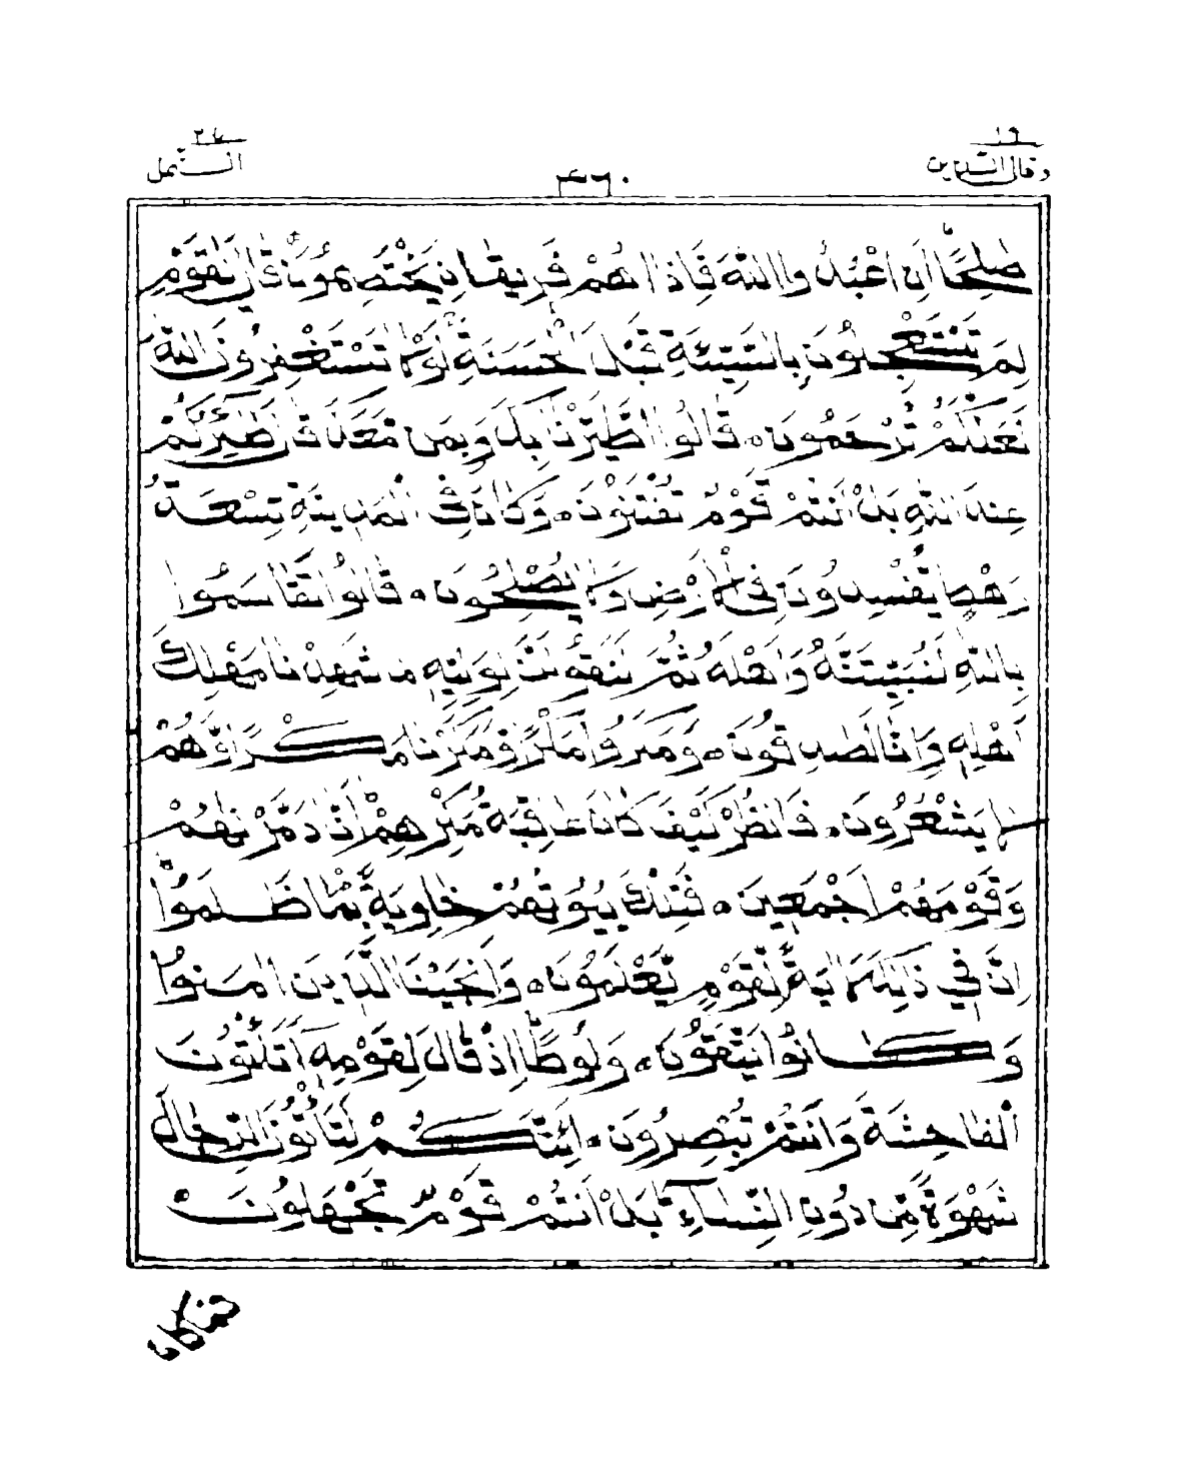 ١٩
وقال الذين
٣٦٠
٢٧
النمل
صٰلِحًا اَنِ اعْبُدُوا اللّٰهَ فَاِذَا هُمْ فَرِيقٰنِ يَخْتَصِمُونَ ۝ قَالَ يٰقَوْمِ
لِمَ تَسْتَعْجِلُونَ بِالسَّيِّئَةِ قَبْلَ الْحَسَنَةِ لَوْلَا تَسْتَغْفِرُونَ اللّٰهَ
لَعَلَّكُمْ تُرْحَمُونَ ۝ قَالُوا اطَّيَّرْنَا بِكَ وَبِمَنْ مَّعَكَ قَالَ طٰٓئِرُكُمْ
عِنْدَ اللّٰهِ بَلْ اَنْتُمْ قَوْمٌ تُفْتَنُونَ ۝ وَكَانَ فِي الْمَدِينَةِ تِسْعَةُ
رَهْطٍ يُّفْسِدُونَ فِي الْاَرْضِ وَلَا يُصْلِحُونَ ۝ قَالُوا تَقَاسَمُوا
بِاللّٰهِ لَنُبَيِّتَنَّهُ وَاَهْلَهُ ثُمَّ لَنَقُولَنَّ لِوَلِيِّهِ مَا شَهِدْنَا مَهْلِكَ
اَهْلِهِ وَاِنَّا لَصٰدِقُونَ ۝ وَمَكَرُوا مَكْرًا وَّمَكَرْنَا مَكْرًا وَّهُمْ
لَا يَشْعُرُونَ ۝ فَانْظُرْ كَيْفَ كَانَ عَاقِبَةُ مَكْرِهِمْ اَنَّا دَمَّرْنٰهُمْ
وَقَوْمَهُمْ اَجْمَعِينَ ۝ فَتِلْكَ بُيُوتُهُمْ خَاوِيَةً بِمَا ظَلَمُوا
اِنَّ فِي ذٰلِكَ لَاٰيَةً لِّقَوْمٍ يَّعْلَمُونَ ۝ وَاَنْجَيْنَا الَّذِينَ اٰمَنُوا
وَكَانُوا يَتَّقُونَ ۝ وَلُوطًا اِذْ قَالَ لِقَوْمِهِ اَتَأْتُونَ
الْفَاحِشَةَ وَاَنْتُمْ تُبْصِرُونَ ۝ اَئِنَّكُمْ لَتَأْتُونَ الرِّجَالَ
شَهْوَةً مِّنْ دُونِ النِّسَآءِ بَلْ اَنْتُمْ قَوْمٌ تَجْهَلُونَ
فما كان